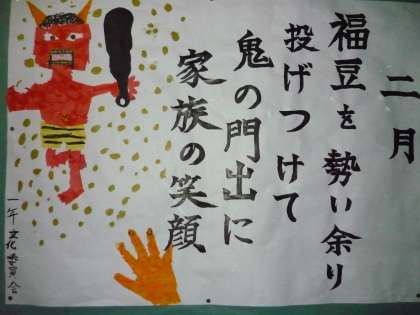 二月
福豆を勢い余り
投げつけて
鬼の門出に
家族の笑顔
一年文化委員会